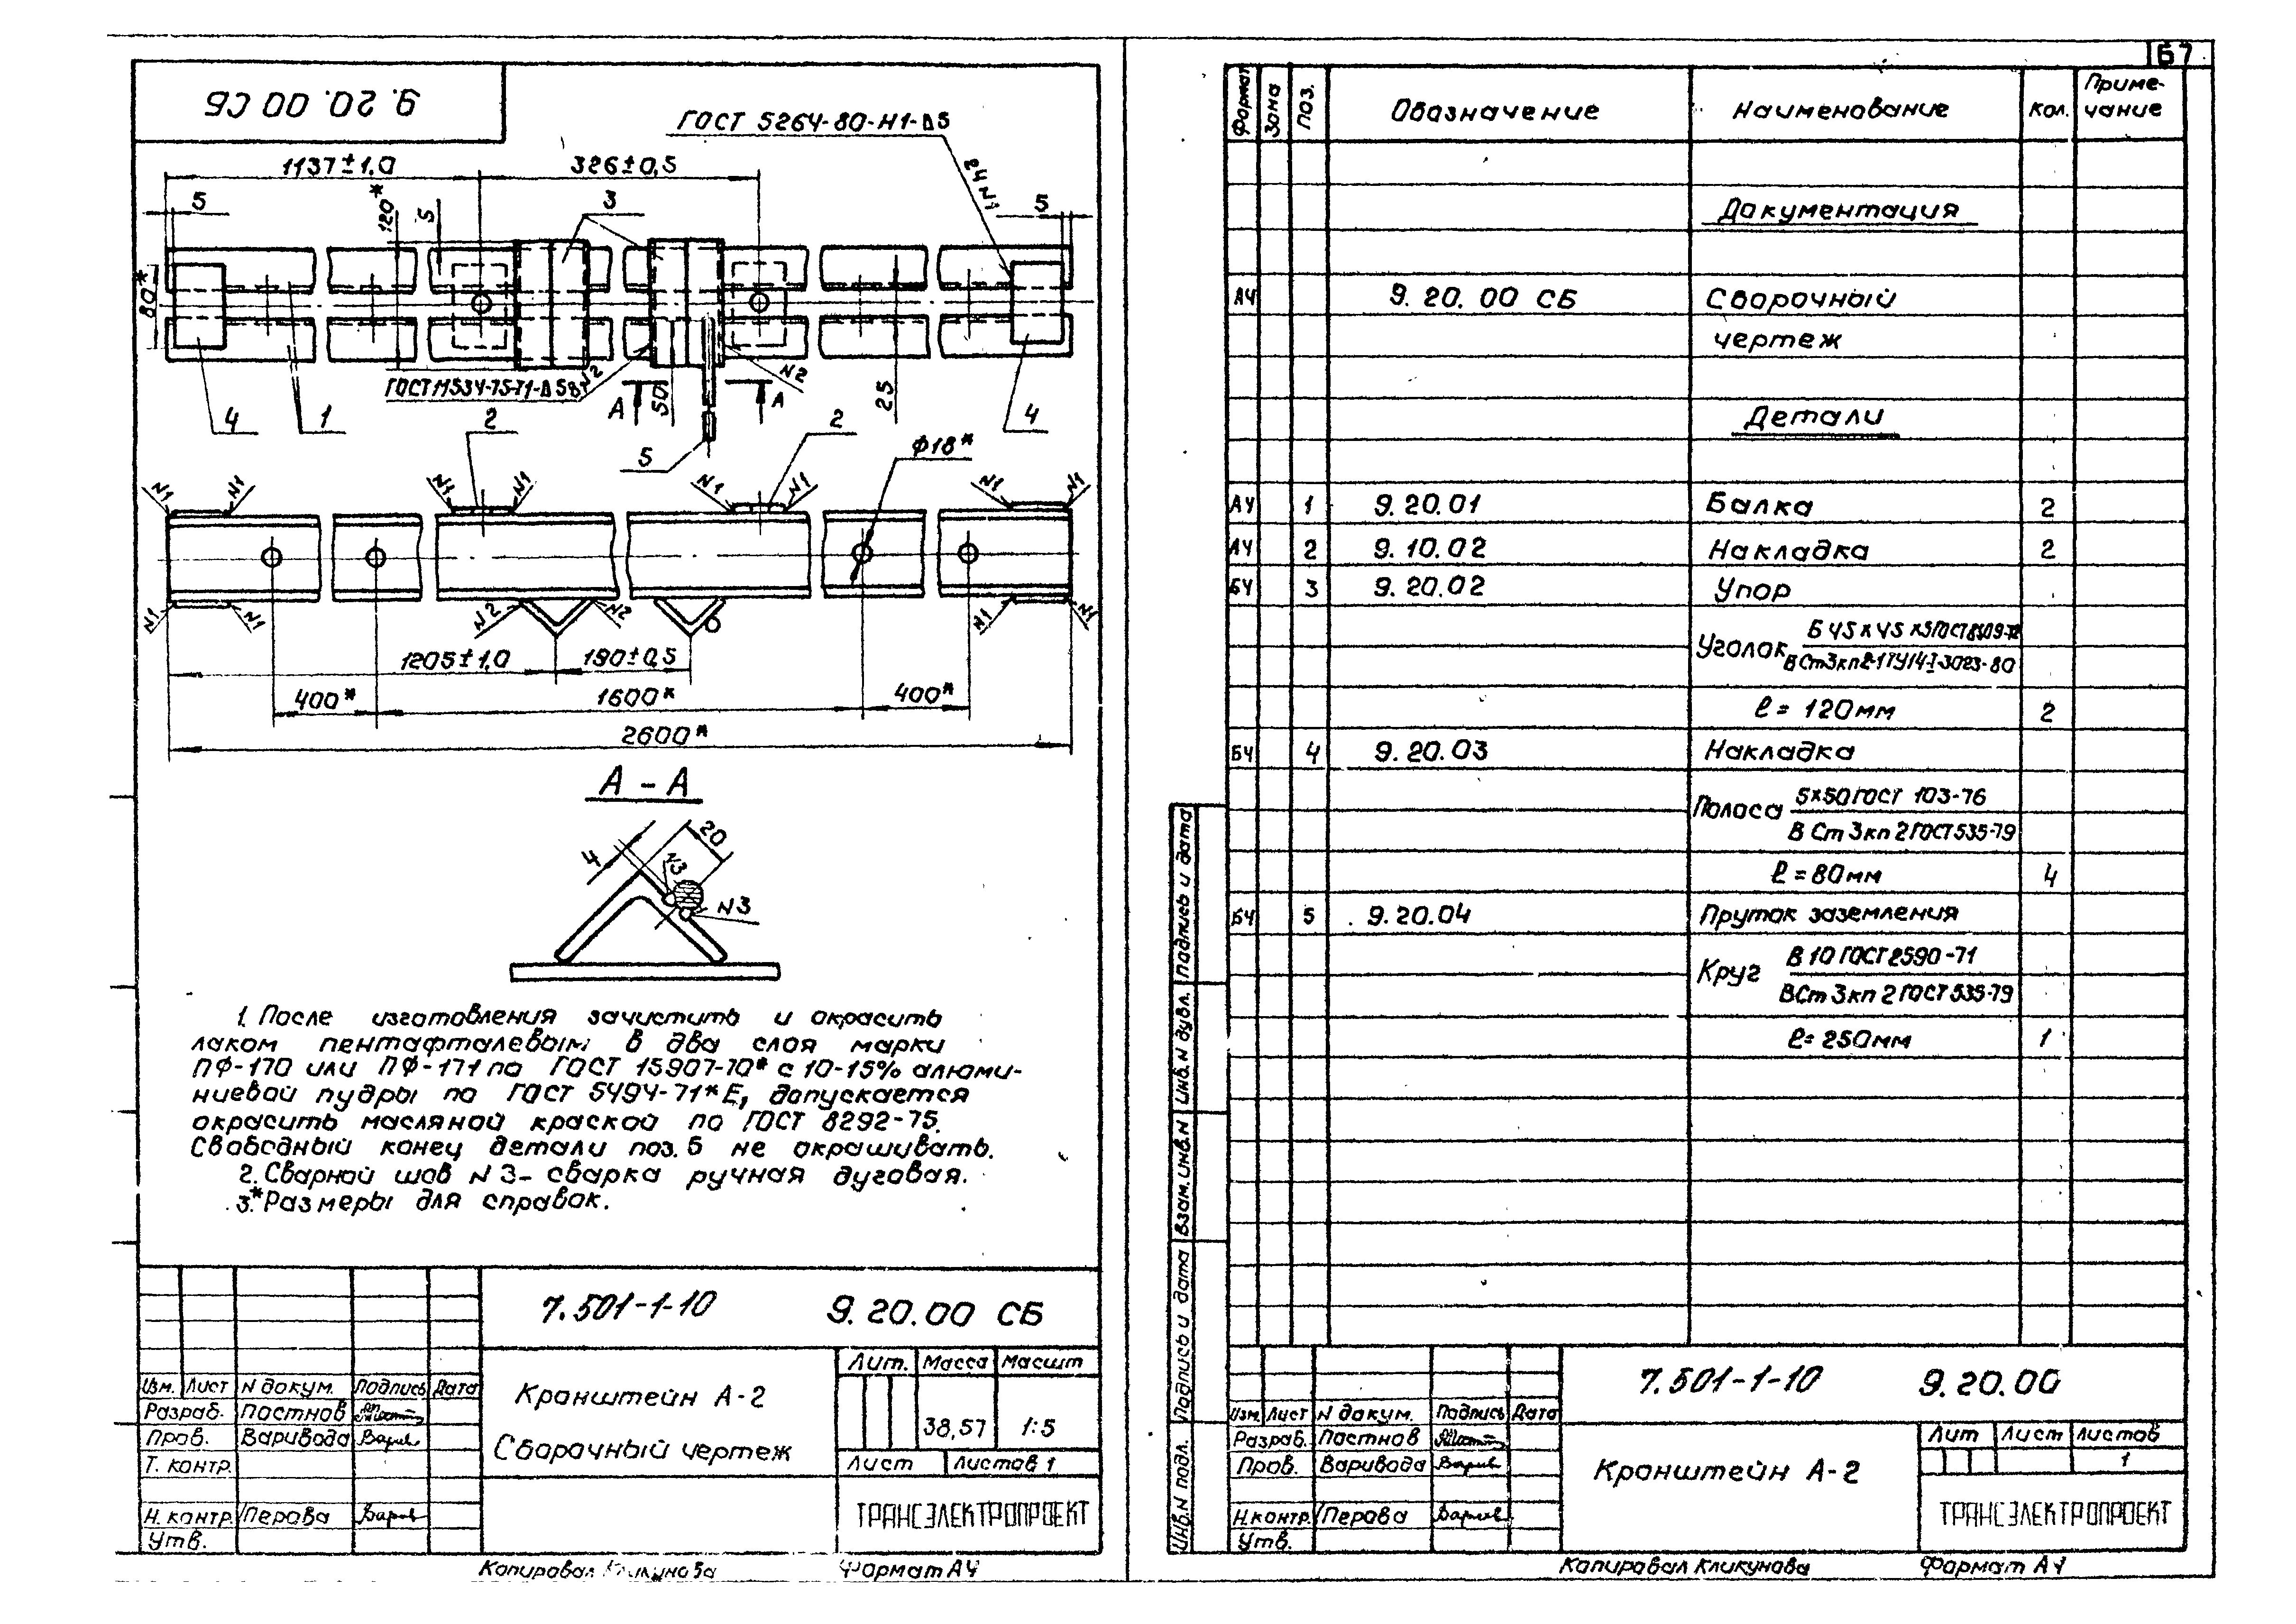 67
9. 20. 00 СБ
ГОСТ 5264-80-Н1-Δ5
1137±1,0
326±0,5
24 N1
5
120*
5
3
5
80*
ГОСТ 11534-75-Т1-Δ5
N2
N2
А
50
А
25
4
1
2
5
2
4
Ф18*
N1
N1
N1
N1
N1
N1
N1
N1
N1
N1
N2
N2
N1
N1
1205±1,0
190±0,5
400*
1600*
400*
2600*
А - А
4
20
N3
N3
1. После изготовления зачистить и окрасить
лаком пентафталевым в два слоя марки
ПФ-170 или ПФ-171 по ГОСТ 15907-70* с 10-15% алюми-
ниевой пудры по ГОСТ 5494-71*Е, допускается
окрасить масляной краской по ГОСТ 8292-75.
Свободный конец детали поз. 5 не окрашивать.
2. Сварной шов N 3- сварка ручная дуговая.
3.*Размеры для справок.
7.501-1-10 9.20.00 СБ
Кронштейн А-2
Сборочный чертеж
Лит. Масса Масшт
38,57 1:5
Лист Листов 1
ТРАНСЭЛЕКТРОПРОЕКТ
Изм. Лист N докум. Подпись Дата
Разраб. Постнов
Пров. Варивода
Т. контр.
Н. контр. Перова
Утв.
Копировал Кликунова Формат А4
Формат Зона Поз. Обозначение Наименование Кол. Приме-
чание
Документация
А4 9. 20. 00 СБ Сборочный
чертеж
Детали
А4 1 9. 20.01 Балка 2
А4 2 9. 10. 02 Накладка 2
БЧ 3 9. 20.02 Упор
Уголок Б 45 х 45 х5 ГОСТ 8509-72
В Ст3кп2-1 ТУ14-1-3023-80
ℓ = 120мм 2
БЧ 4 9. 20. 03 Накладка
Полоса 5х50 ГОСТ 103-76
В Ст 3кп 2 ГОСТ 535-79
ℓ = 80мм 4
БЧ 5 9. 20.04 Пруток заземления
Круг В 10 ГОСТ 2590-71
В Ст 3кп 2 ГОСТ 535-79
ℓ= 250мм 1
Подпись и дата
Инв. N дубл.
Взам. инв. N
Подпись и дата
Инв. N подл.
7.501-1-10 9.20.00
Изм. Лист N докум. Подпись Дата
Разраб. Постнов
Пров. Варивода
Н.контр. Перова
Утв.
Кронштейн А-2
Лит Лист Листов
1
ТРАНСЭЛЕКТРОПРОЕКТ
Копировал Кликунова Формат А4